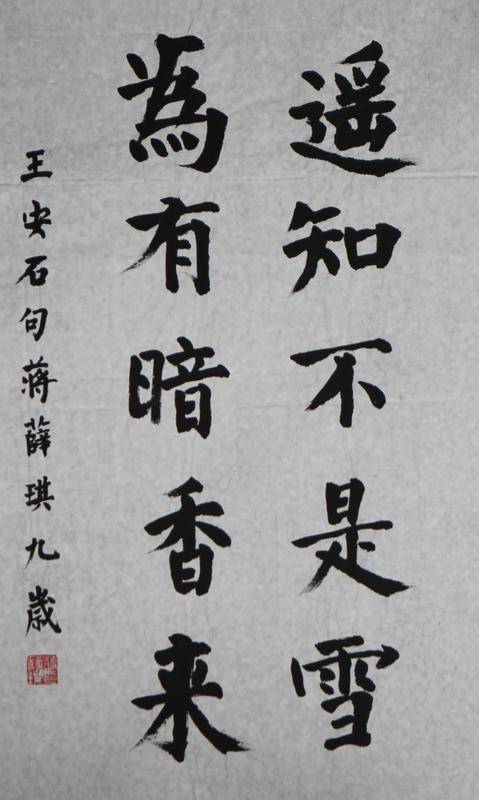 遥知不是雪
為有暗香来
王安石句蒋薛琪九歳